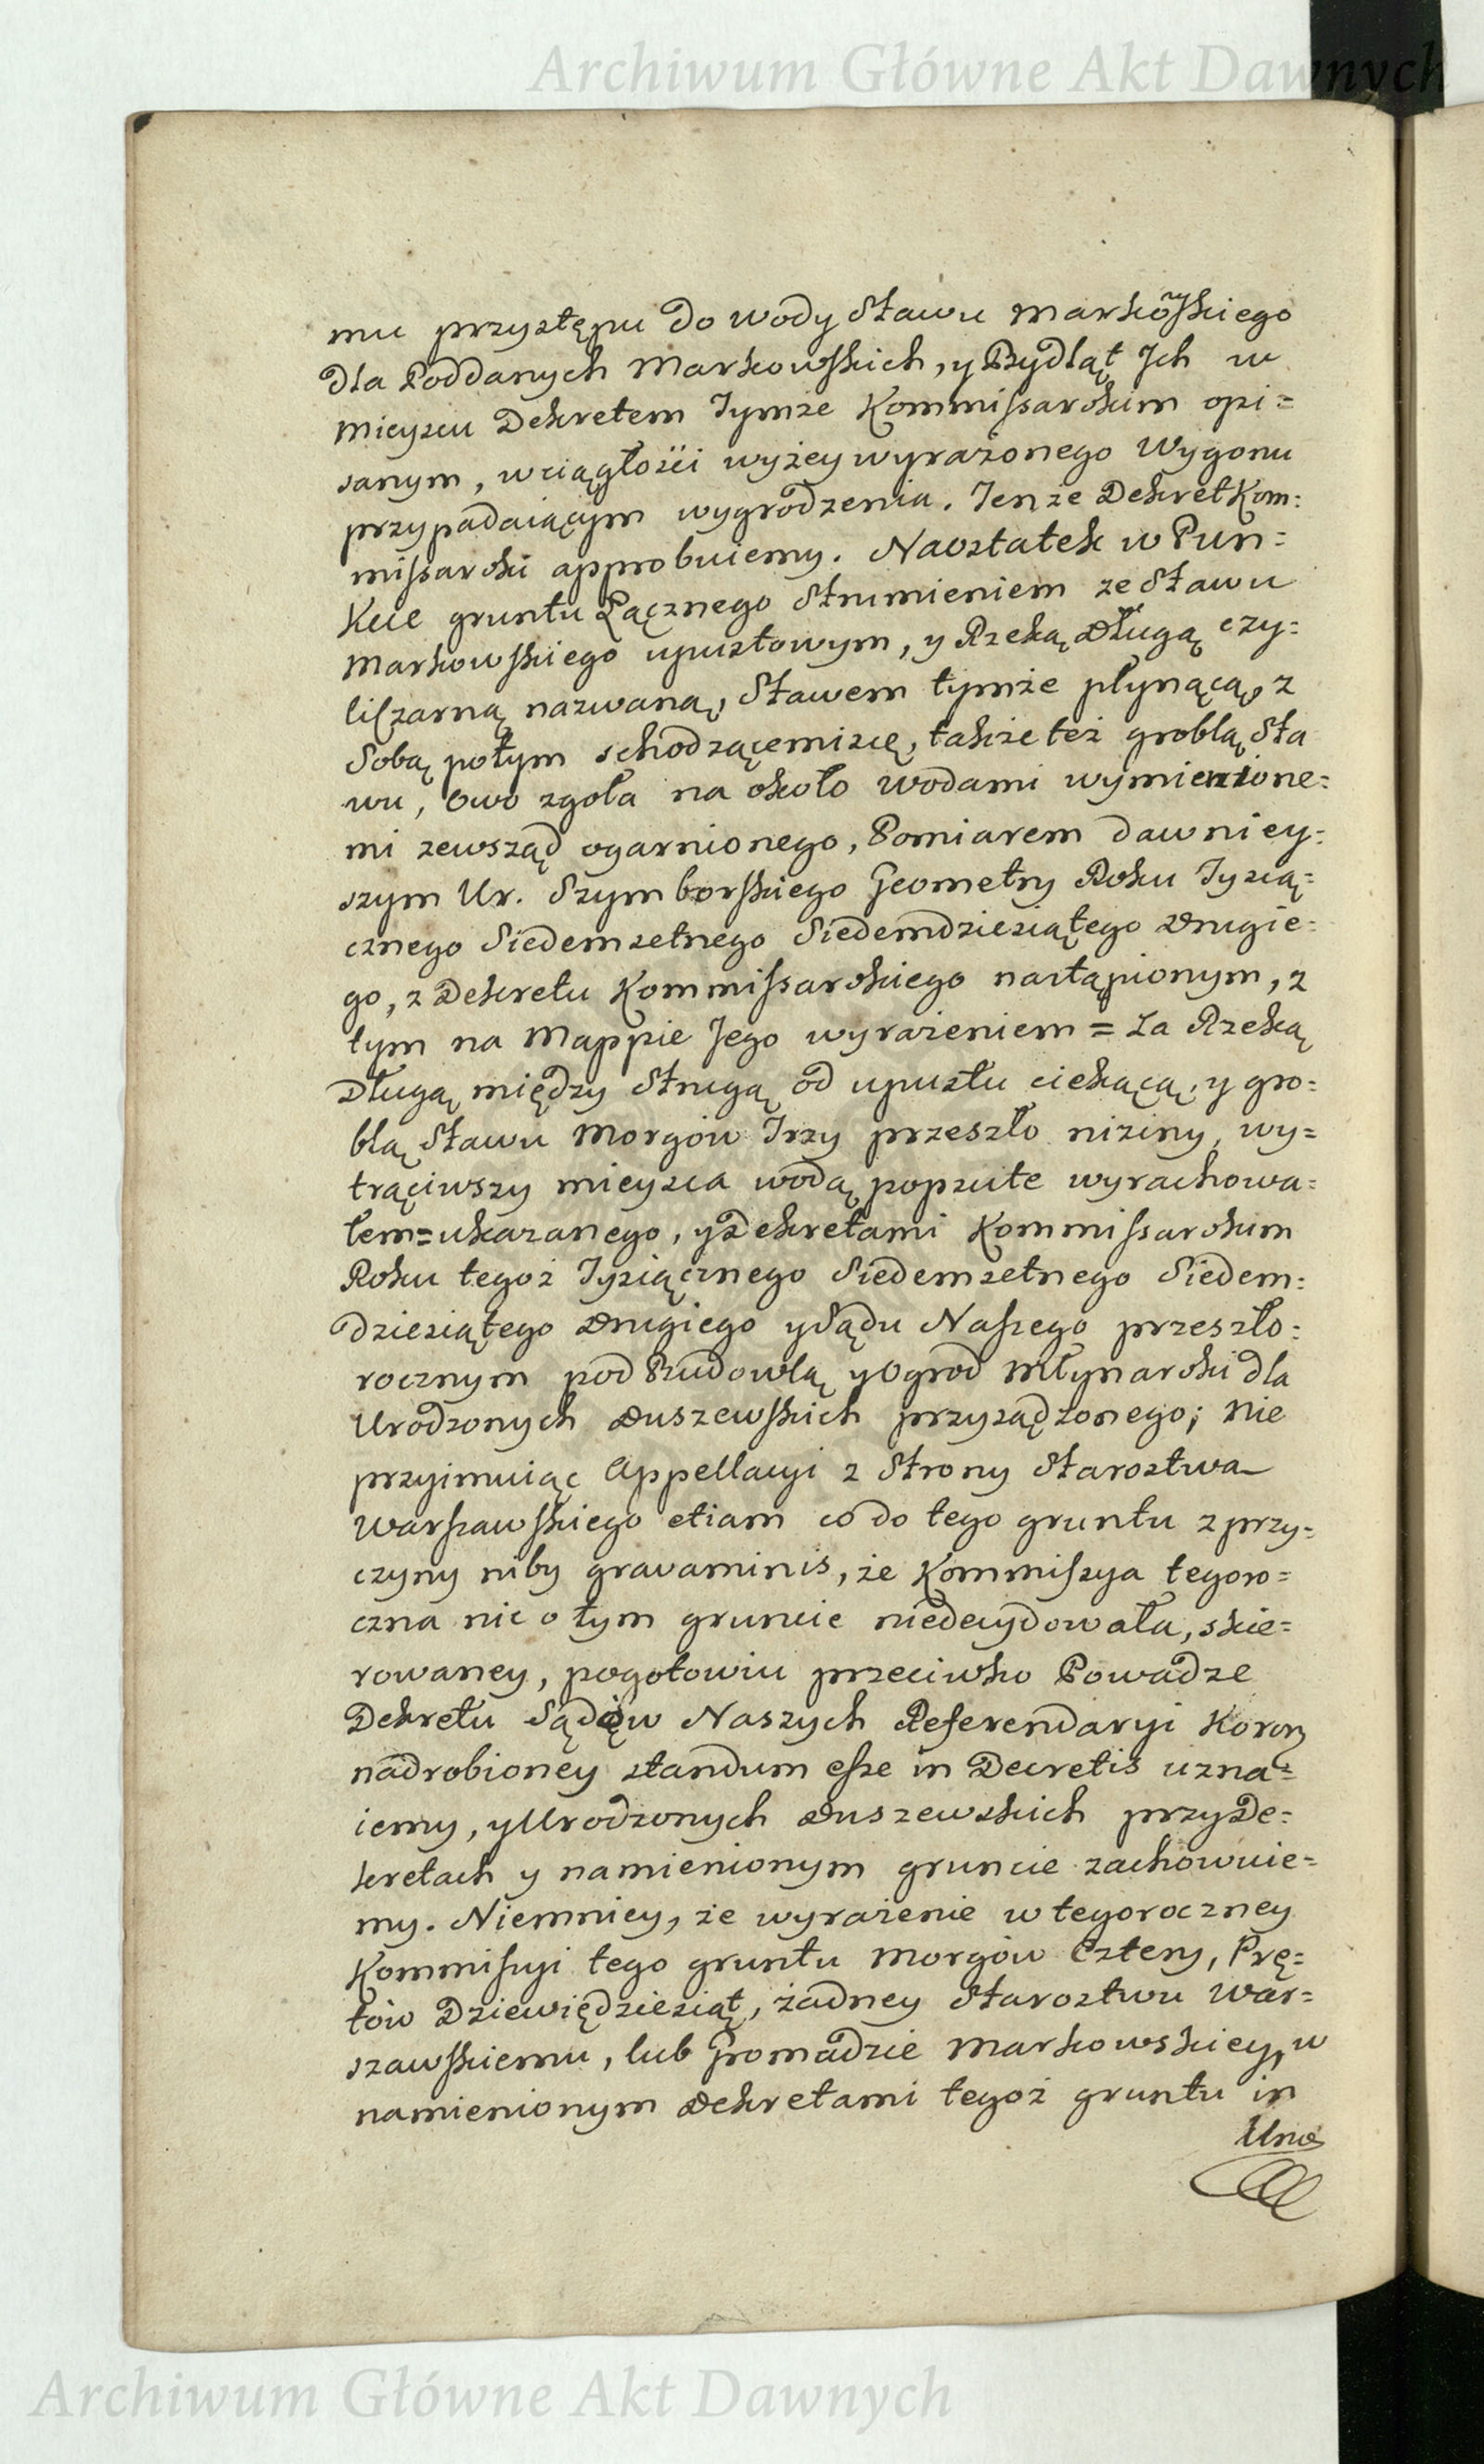 Archiwum Główne Akt Dawnych
mu przystępu do wody Stawu Markowskiego
dla Poddanych Markowskich, y Bydląt Jch w
Mieyscu Dekretem Tymże Kommissarskim opi=
sanym, wciągłości wyżey wyrażonego Wygonu
przypadaiącym wygrodzenia. Tenże Dekret Kom:
missarski approbuiemy. Naostatek w Pun=
Kcie gruntu Łącznego Strumieniem ze Stawu
Markowskiego upustowym, y Rzeką Długą czy=
li Czarną nazwaną, Stawem tymże płynącą, z
Sobą potym schodzącemi się, takżeteż groblą Sta
wu, owo zgoła na około wodami wymienione=
mi zewsząd ogarnionego, Pomiarem dawniey=
szym Ur. Szymborskiego Geometry Roku Tysią=
cznego Siedemsetnego Siedemdziesiątego Drugie=
go, z Dekretu Kommissarskiego nastąpionym, z
tym na Mappie Jego wyrażeniem = Za Rzeką
Długą między Strugą od upustu ciekącą, y gro=
blą Stawu Morgow Trzy przeszło niziny, wy=
trąciwszy mieysca wodą popsute wyrachowa=
łem = ukazanego, y Dekretami Kommissarskim
Roku tegoż Tysiącznego Siedemsetnego Siedem=
dziesiątego Drugiego y Sądu Naszego przeszło=
rocznym pod Budowlą y Ogrod Młynarski dla
Urodzonych Duszewskich przysądzonego; nie
przyimuiąc Appellacyi z Strony Starostwa
Warszawskiego etiam co do tego gruntu z przy=
czyny niby gravaminis, że Kommissya tegoro=
czna nic o tym gruncie niedecydowała, skie=
rowaney, pogotowiu przeciwko Powadze
Dekretu Sądów Naszych Referendaryi Koron
nadrobioney standum esse in Decretis uzna=
iemy, y Urodzonych Duszewskich przy De=
kretach y namienionym gruncie zachowuie=
my. Niemniey, że wyrażenie w tegoroczney
Kommissyi tego gruntu Morgow Cztery, Prę=
tów Dziewiędziesiąt, żadney Starostwu War=
szawskiemu, lub Gromadzie Markowskiey, w
namienionym Dekretami tegoż gruntu in
Uno
Archiwum Główne Akt Dawnych